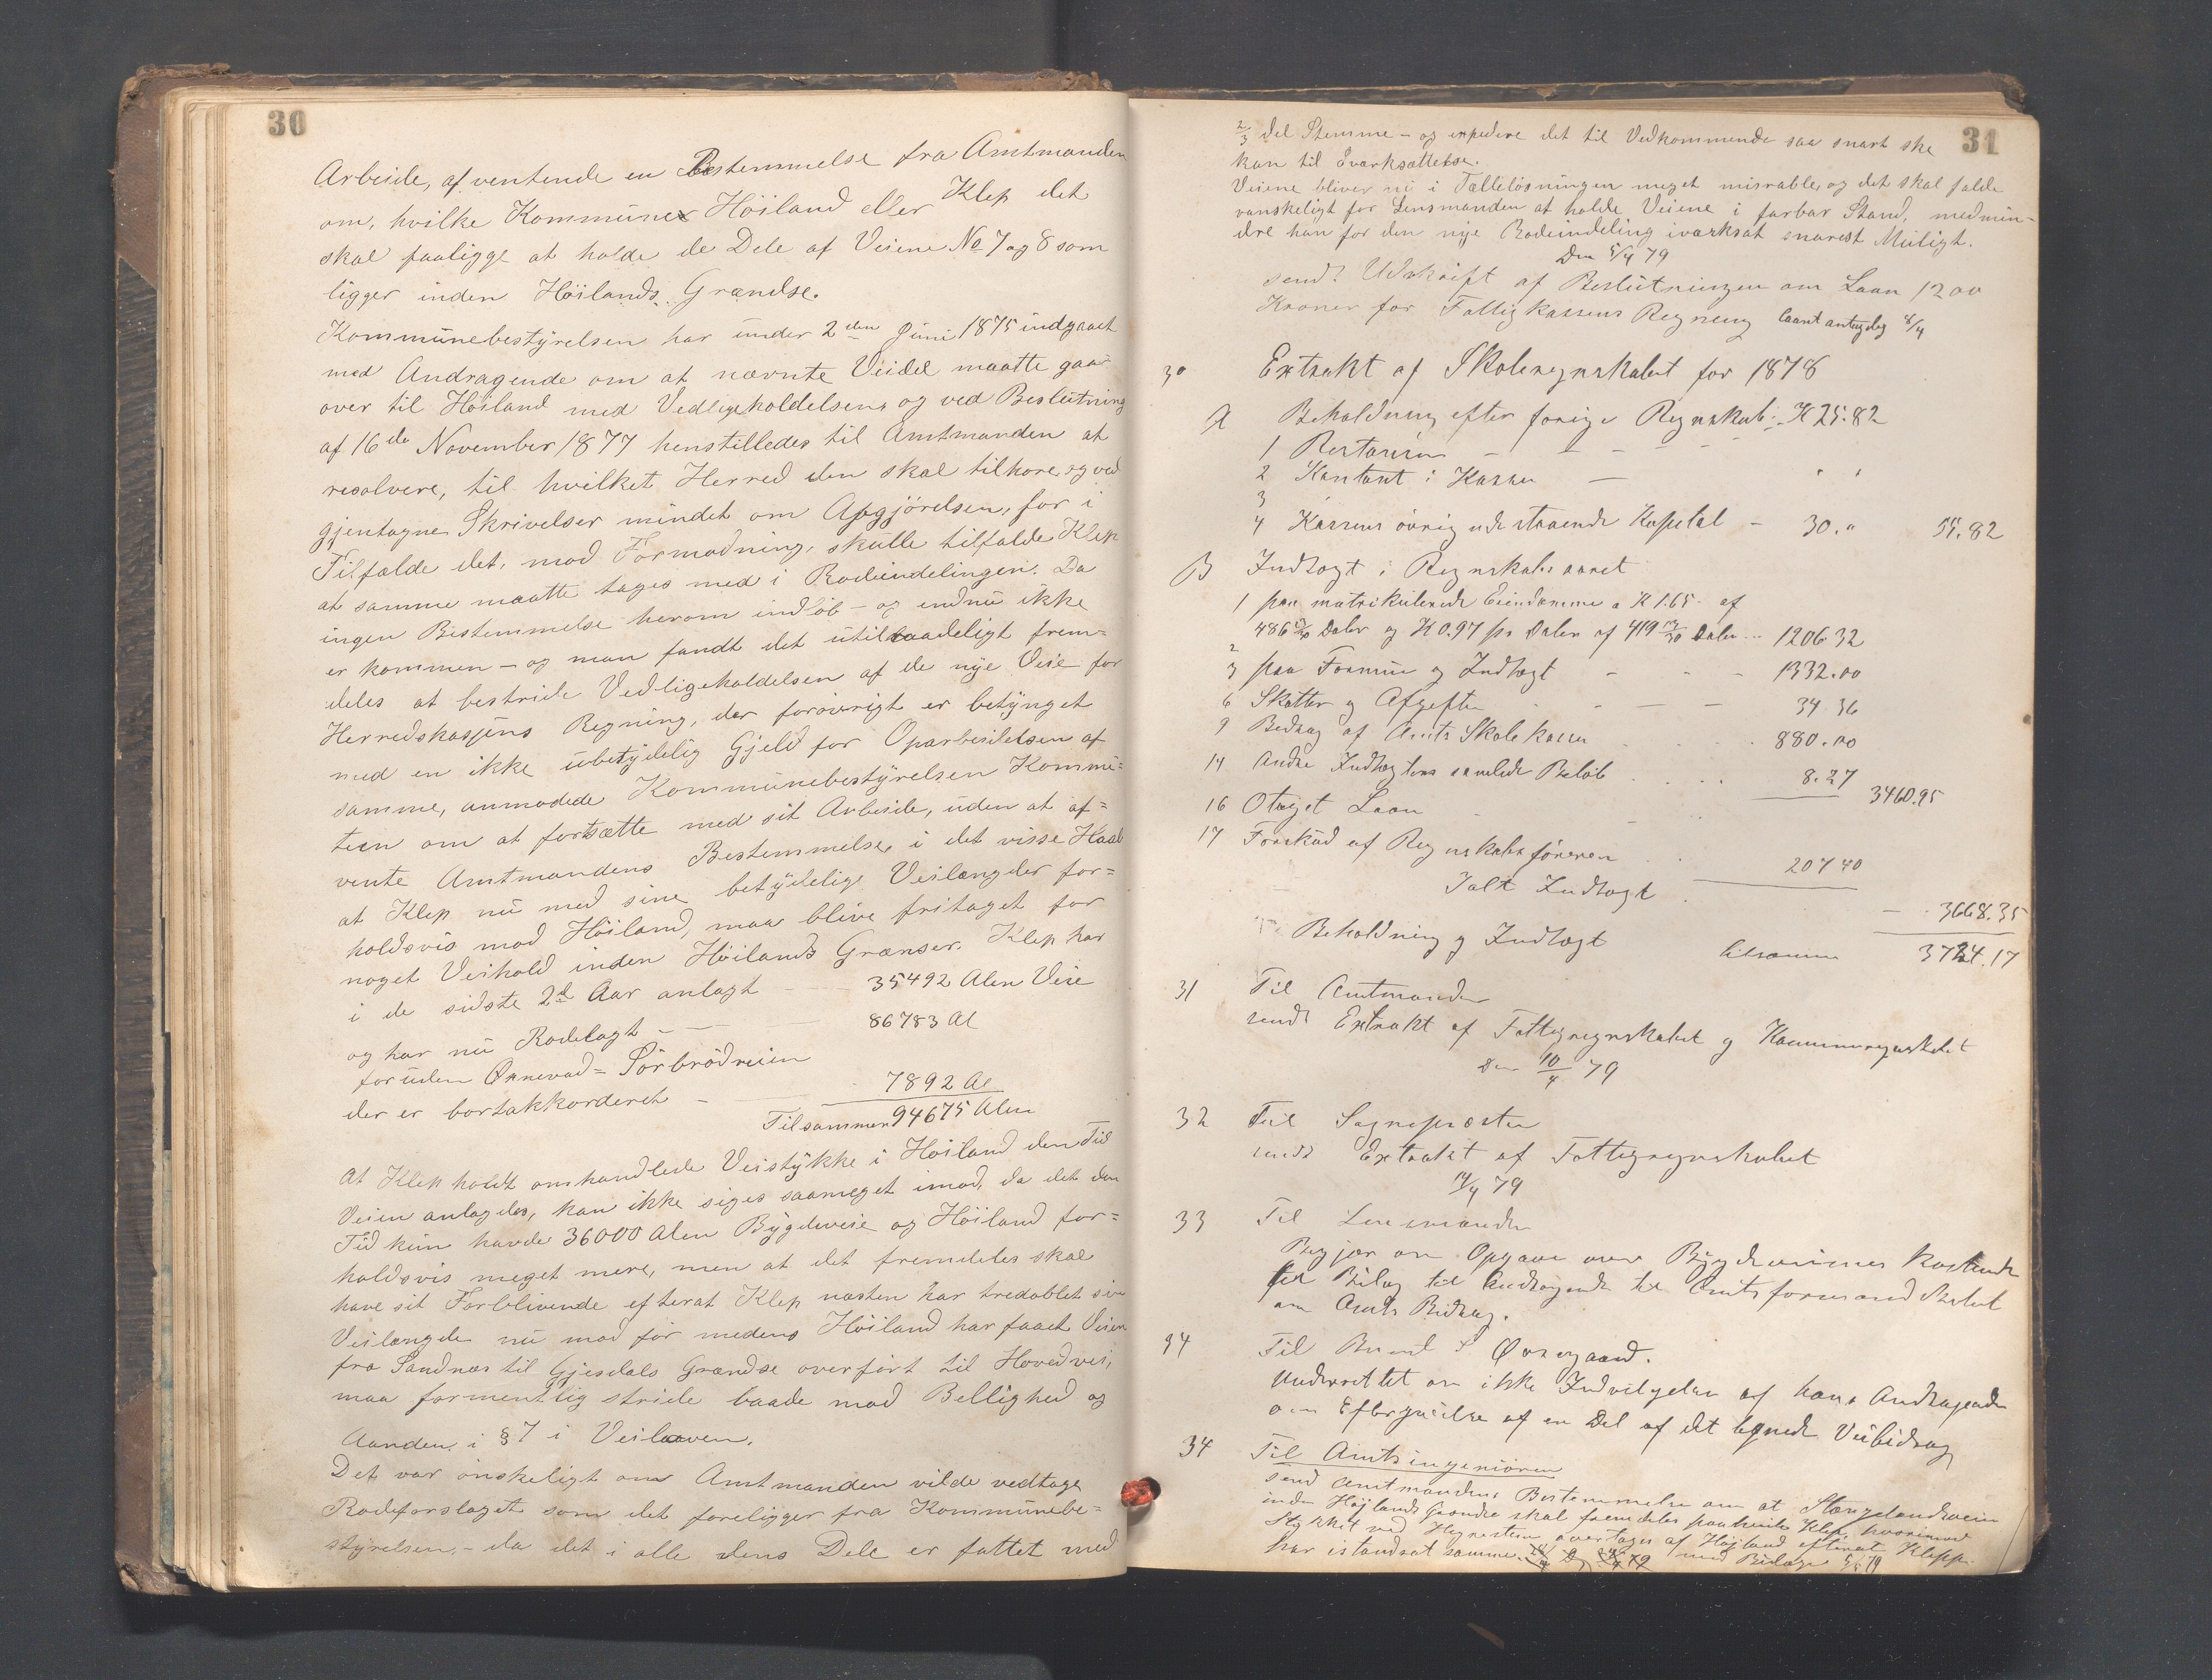 30
Arbeide, afventende en Bestemmelse fra Amtmanden
om, hvilke Kommuner Höiland eller Klep det
skal paaligge at holde de Dele af Veiene No 7 og 8 som
ligger inden Höilands Grændse.
Kommunebestyrelsen har under 2den Juni 1875 indgaaet
med Andragende om at nævnte Veidel maatte gaa
over til Höiland med Vedligeholdelsen, og ved Beslutning
af 16de November 1877 henstilledes til Amtmanden at
resolvere, til hvilket Herred den skal tilhøre, og ved
gjentagne Skrivelser mindet om Afgjörelsen, for i
Tilfælde det, mod Formodning, skulle tilfalde Klep
at samme maatte tages med i Rodeindelingen. Da
ingen Bestemmelse herom indløb - og endnu ikke
er kommen - og man fandt det utilraadeligt frem=
deles at bestride Vedligeholdelsen af de nye Veie for
Herredskassens Regning, der forövrigt er betynget
med en ikke ubetydelig Gjeld for Oparbeidelsen af
samme, anmodede Kommunebestyrelsen Kommi=
teen om at fortsætte med sit Arbeide, uden at af=
vente Amtmandens Bestemmelse, i det visse Haab
at Klep nu med sine betydelige Veilængder for=
holdsvis mod Höiland, maa blive fritaget for
noget Veihold inden Höilands Grænser. Klep har
i de sidste 2d Aar anlagt - 35492 Alen Veie
og har nu Rodelagt - - 86783 Al
foruden Orrevad= Sörbrödveien
der er bortakkorderet - 7892 Al
Tilsammen 94675 Alen
At Klep holdt omhandlede Veistykke i Höiland den Tid
Veien anlagdes, kan ikke siges saameget imod, da det den
Tid kun havde 36000 Alen Bygdeveie og Höiland for=
holdsvis meget mere, men at det fremdeles skal
have sit Forblivende efterat Klep næsten har tredoblet sin
Veilængde nu mod før medens Höiland har faaet Veien
fra Sandnæs til Gjesdals Grændse overfört til Hovedvei,
maa formentlig stride baade mod Bellighed og
Aanden i § 7 i Veiloven.
Det var önskeligt om Amtmanden vilde vedtage
Rodeforslaget som det foreligger fra Kommunebe=
styrelsen, - da det i alle dens Dele er fattet med
31
2/3 del Stemme - og expedere det til Vedkommende saa snart ske
kan til Iværksættelse.
Veiene bliver nu i Tælleløsningen meget misrable, og det skal falde
vanskeligt for Lensmanden at holde Veiene i farbar Stand, medmin-
dre han før den nye Rodeindeling iværksat snarest Muligt.
Den 5/4 79
send? Udskrift af Beslutningen om Laan 1200
Kroner for Fattigkassens Regning laant antagelig 8/4
30 Extrakt af Skoleregnskabet for 1878
A Beholdning efter forige Regnskab: K 25.82
1 Restancer - - - -
2 Kontant i Kassen -
3
4 Kassens övrig udestaaende Kapital - 30." 55.82
B Indtægt i Regnskabsaaret
1 paa matrikulerede Eiendomme a K 1.65 af
486 Daler og K 0.97 pr Daler af 419 Daler .. 1206 32
2
3 paa Formue og Indtægt - - - 1332.00
6 Skatter og Afgifter - - - 34 36
9 Bidrag af Amts Skolekassen . . . 880.00
14 Andre Indtægters samlede Beløb . . . . 8.27 3460.95
16 Optaget Laan
17 Forskud af Regnskabsføreren . . 207 40
Ialt Indtægt . - 3668.35
Beholdning og Indtægt tilsammen 3724.17
31 Til Amtmanden
sendt Extrakt af Fattigregnskabet og Kommuneregnskabet
Den 10/4 79
32 Til Sognepresten
sendt Extrakt af Fattigregnskabet
14/4 79
33 Til Lensmanden
Begjær om Opgave over Bygdeveienes Kostende
til Bilag til Andragende til Amtsformandskabet
om Amts Bidrag.
34 Til Ørregaard.
Underrettet om ikke Indvilgelse af hans Andragende
om Eftergivelse af en Del af det lignede Veibidrag
34 Til Amtsingeniøren
send Amtmandens Bestemmelse om at Stangelandsveien
inden Höjlands Grændse skal fremdeles paahvile Klep, hvorimod
Stykket ved Hegresteen overtages af Höjland efterat Klepp
har istandsat samme. med Bilage 5/5 79